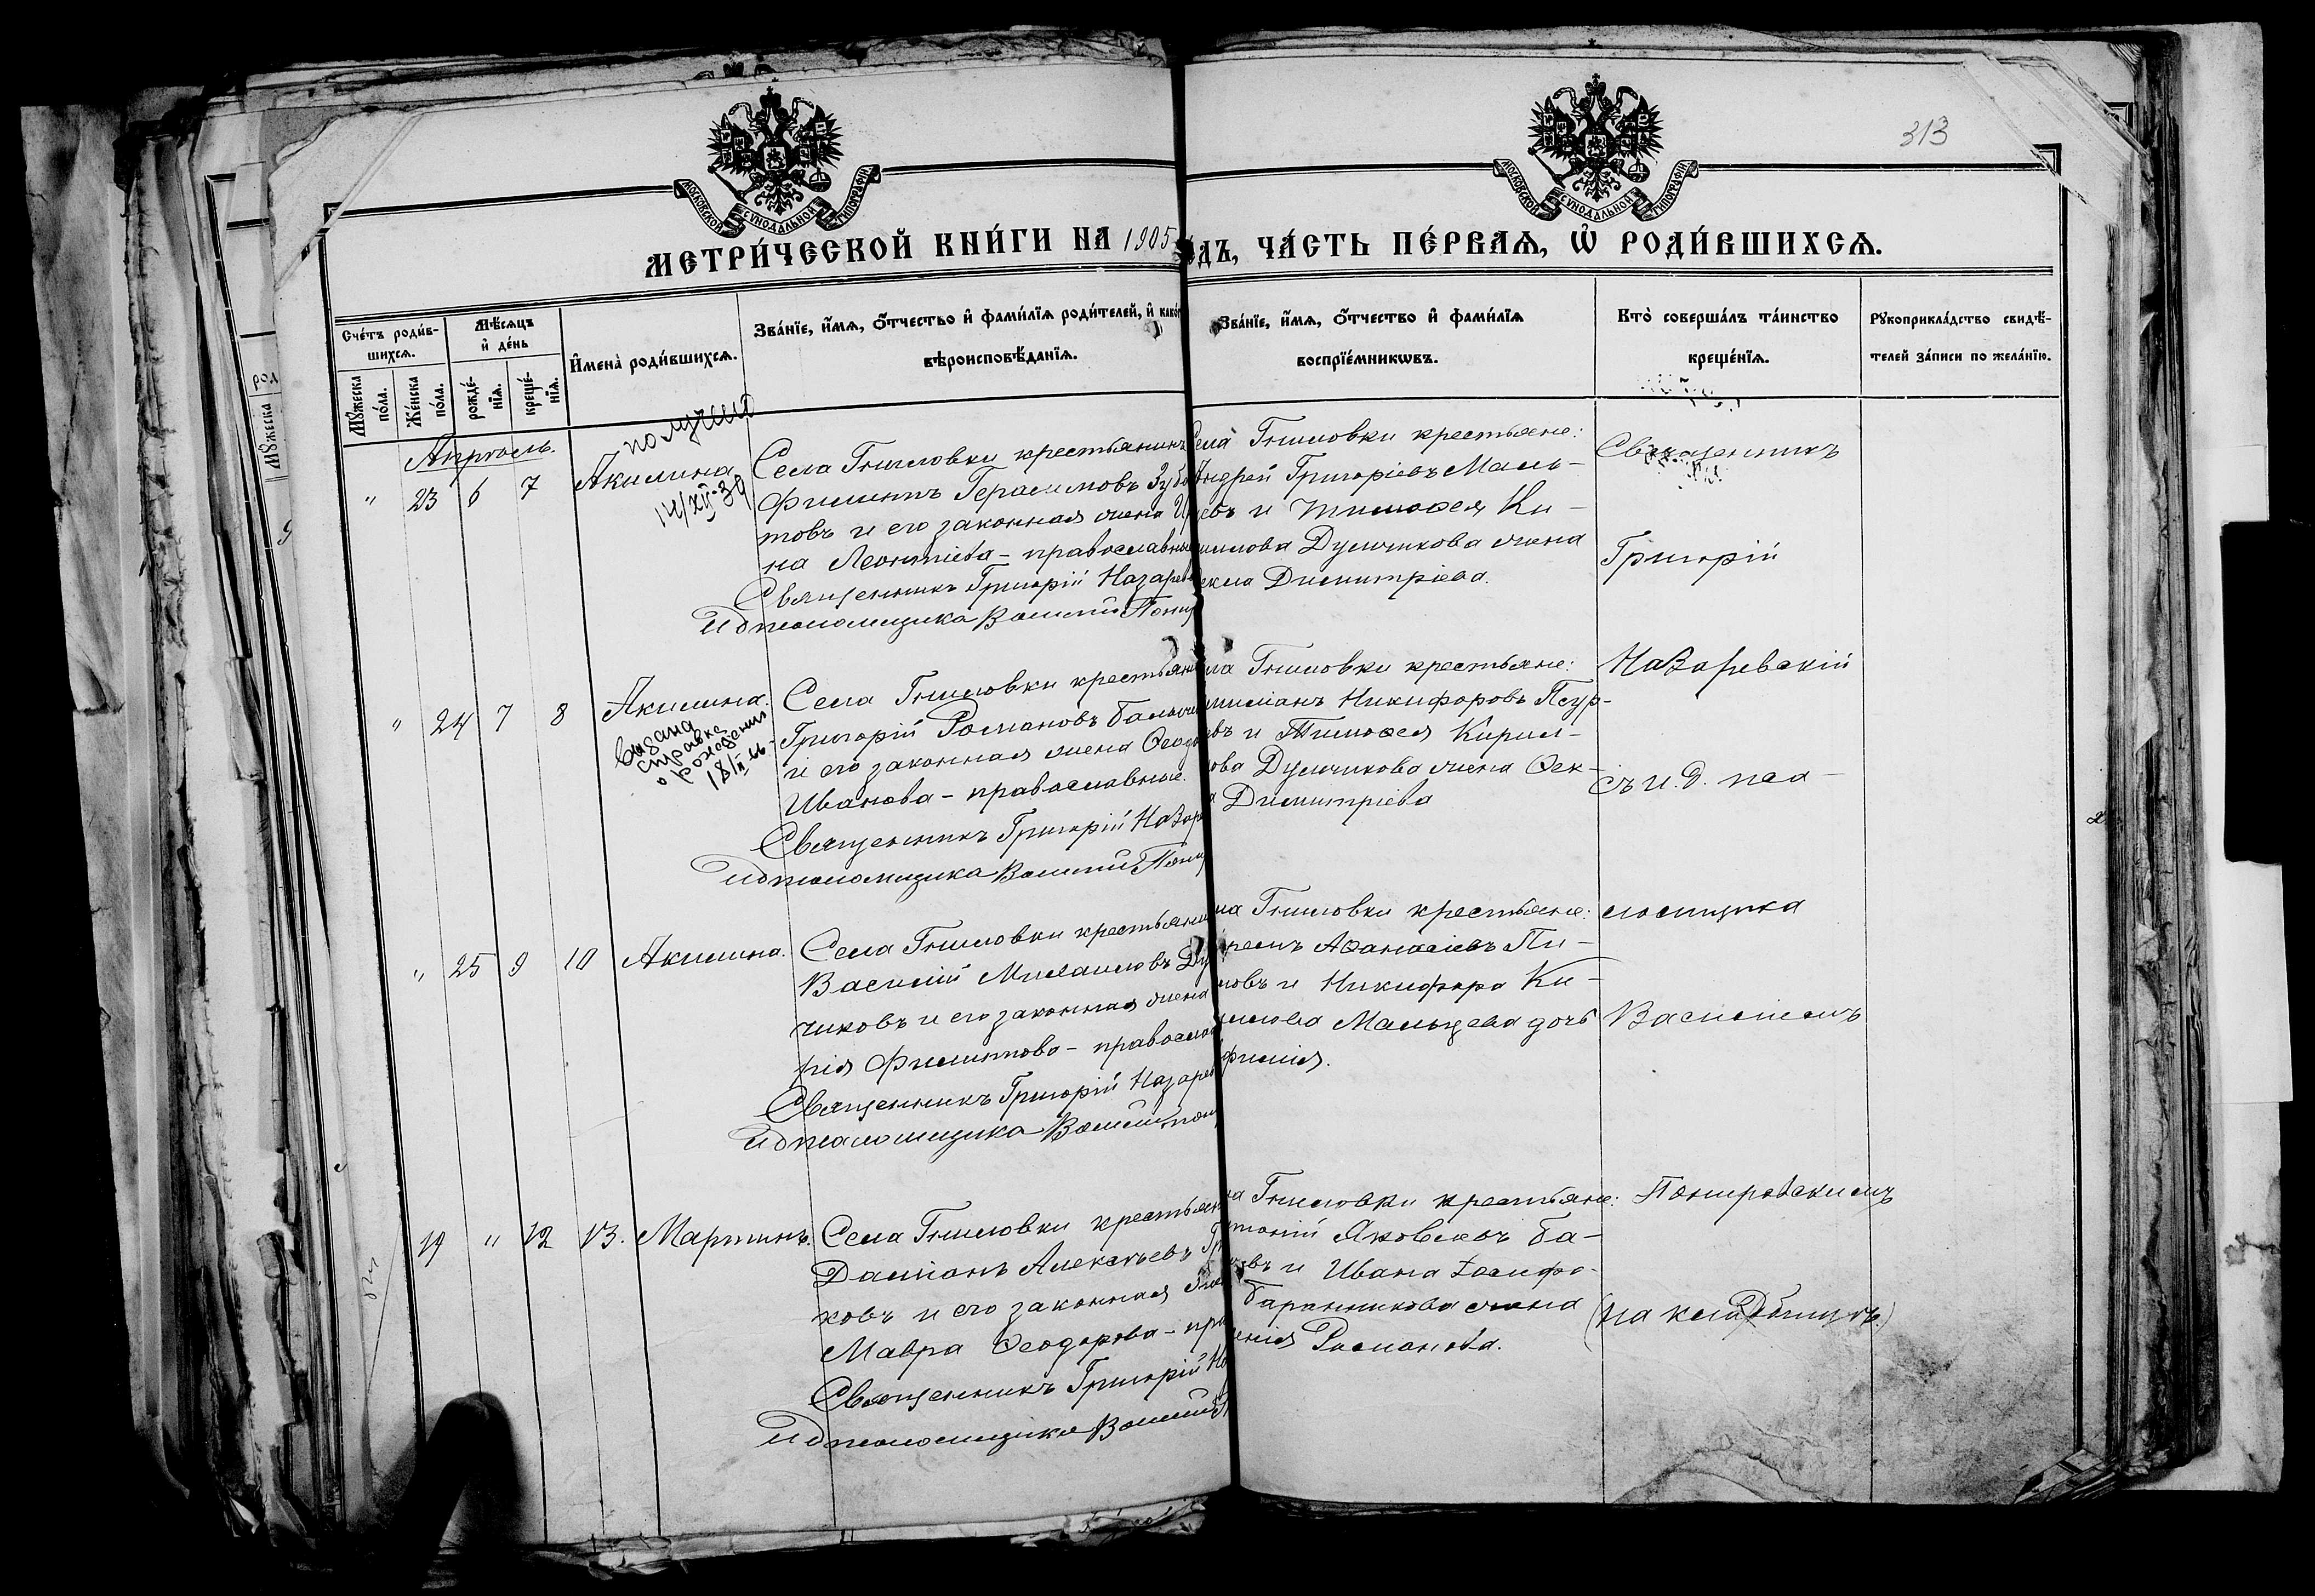 313
МОСКОВСКОЙ СУНОДАЛЬНОЙ ТИПОГРАФІИ
МОСКОВСКОЙ СУНОДАЛЬНОЙ ТИПОГРАФІИ
МЕТРИ́ЧЕСКОЙ КНИ́ГИ НА 1905
ДЪ, ЧА́СТЬ ПЕ́РВАѦ, Ѡ҆ РОДИ́ВШИХСѦ.
Сче́тъ роди́в-
шихсѧ.
Мѣ́сѧцъ
и҆ де́нь
Мꙋ́жеска
по́ла.
Же́нска
по́ла.
рожде́-
нїѧ.
креще́-
нїѧ.
И҆мена̀ роди́вшихсѧ.
Зва́нїе, и҆́мѧ, ѻ҆́тчество и҆ фами́лїѧ роди́телей, и҆ како́г
вѣроисповѣ́данїѧ.
Зва́нїе, и҆́мѧ, ѻ҆́тчество и҆ фами́лїѧ
воспрїе́мникѡвъ.
Кто̀ соверша́лъ та́инство
креще́нїѧ.
Рꙋкоприкла́дство свидѣ́-
телей за́писи по жела́нїю.
Апрѣль.
" 23 6 7
Акилина
14/XII-39
Села Гниловки крестьянинъ
Филиппъ Герасимовъ Зуб
товъ и его законная жена И
на Леонтіева - православны
Священникъ Григорій Назарев
И д псаломщика Василій Пони
Села Гниловки крестьяне:
Андрей Григоріевъ Маль-
цевъ и Тимофея Ки-
риллова Думчикова жена
Ѳекла Димитріева.
Священникъ
Григорій
" 24 7 8
Акилина.
выдана
справка
о рождении
Села Гниловки крестьян
Григорій Романовъ
и его законная жена Ѳеодо
Иванова - православные.
Священникъ Григорій Назар
И д псаломщика Василій Пони
ла Гниловки крестьяне:
Никифоровъ
въ и Тимофея Кирил-
лова Думчикова жена Ѳек-
ла Димитріева
Назаревскій
съ и. д. пса-
" 25 9 10
Акилина.
Села Гниловки крестьяни
Василій Михаиловъ Ду
чиковъ и его законная жена
рія Филиппова - правосла
Священникъ Григорій Назаре
И д псаломщика Василій Пон
ла Гниловки крестьяне:
Аѳанасіевъ Пи-
ловъ и Никифора Ки-
риллова Мальцева дочь
фимія.
ломщика
Василіемъ
19 " 12 13.
Мартинъ.
Села Гниловки крестьян
Даміанъ Алексѣевъ
ковъ и его законная жен
Мавра Ѳеодорова - пра
Священникъ Григорій На
И д псаломщика Василій П
ла Гниловки крестьяне:
Яковлевъ Ба-
овъ и Ивана Іосифо-
Баранникова жена
енія Романова.
Понировскимъ
(на кладбищѣ.)